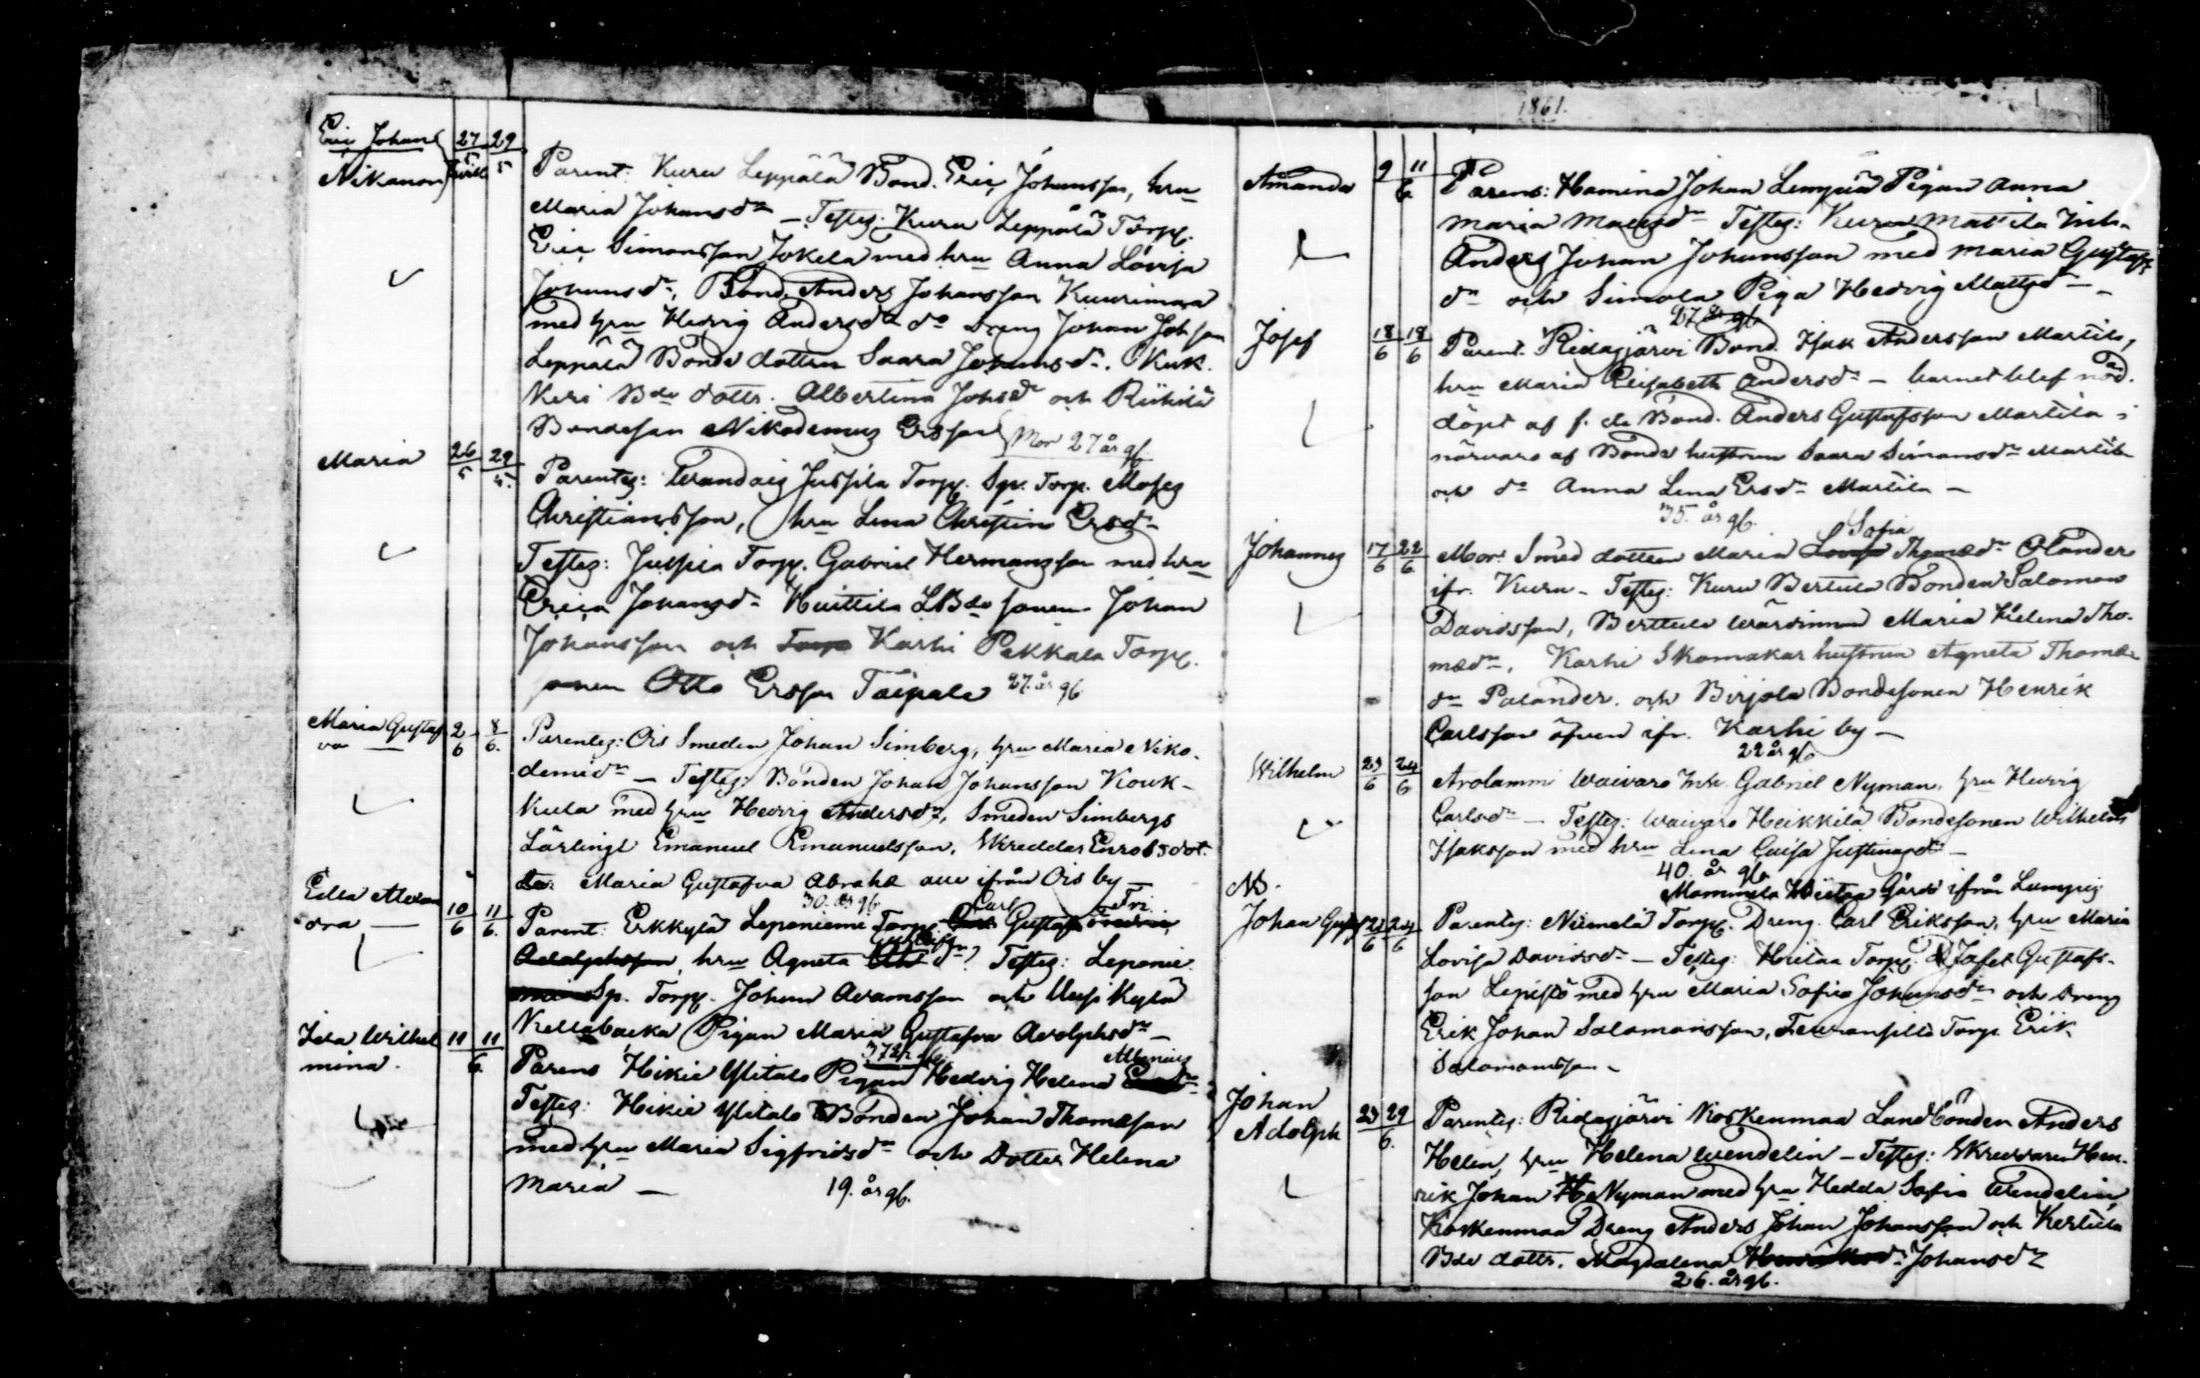 1861.
Eric Johan 27/5 29/5
Nikanor
Parent: Kuru Leppälä Bond. Eric Johansson, hru
Maria Johansdr — Testes: Kuru Leppälä Torp.
Eric Simonsson Jokela med hru Anna Lovisa
Johansdr, Bond. Anders Johansson
med hru Hedvig Andersdr do Dreng Johan Johsson
Leppälä Bonde dottren Saara Johansdr.
Bde dottr. Albertina Johsdr och
Bondeson Nikodemus Ersson Mor 27 år gl
Maria 26/5 29/5
Parentes: Jussila Torp. Sp. Torp. Moses
Christiansson, hru Lena Christina Ersdr
Testes: Jussila Torp. Gabriel Hermansson med hru
Erica Johansdr Huittila LBde sonen Johan
Johansson och Karhi Pekkala Torp.
sonen Otto Ersson Taipale 27 år gl
Maria Gustaf
va — 2/6 8/6
Parentes: Ois Smeden Johan Simberg, hru Maria Niko-
demidr — Testes: Bonden Johan Johansson Kouk-
kula med hru Hedvig Andersdr, Smeden Simbergs
Lärlingl Emanuel Emanuelsson, Skreddar dot-
ter Maria Gustafva Abrahx alle ifrån Ois by —
30 år gl.
Edla Alexan
dra — 10/6 11/6
Carl Fri
Parent: Erkkylä Leponiemi Torp. Gustaf
Adolphsson, hru Agneta dr Testes: Leponie-
Sp. Torp. Johan Adamsson och Uusikylä
Kellobacka Pigan Maria Gustafva Adolphsdr —
37 år gl.
Ida Wilhel
mina. 11 11/6
Parens Hikiä Ylitalo Pigan Hedvig Helena
Testes: Hikiä Ylitalo Bonden Johan Thomasson
med hru Maria Sigfridsdr och Dotter Helena
Maria — 19. år gl.
Amanda 9 11/6
Parens: Hamina Johan Pigan Anna
Maria Mattsdr Testes: Kuru Mattila Inh.
Anders Johan Johansson med Maria Gustafs
dr och Simola Piga Hedvig Mattsdr —
27 år gl
Josef 18/6 18/6
Parent. Ridasjärvi Bond. Isak Andersson Martila,
hru Maria Elisabeth Andersdr — barnet blef nöd-
döpt af f. de Bond. Anders Gustafsson Martila i
närvaro af Bonde hustrun Saara Simonsdr Martila
och do Anna Lena Ersdr Martila —
35. år gl.
Johannes 17/6 22/6
Sofia
Mor: Smed dottren Maria Thomædr Olander
ifr. Kuru — Testes: Kuru Bertula Bonden Salomon
Davidsson, Berttula Wärdinnan Maria Helena Tho-
mædr, Karhi Skomakar hustrun Agneta Thomæ
dr Palander. och Birjola Bondesonen Henrik
Carlsson äfven ifr. Karhi by —
22 år gl
Wilhelm 23/6 24/6
Arolammi Waivaro Inh. Gabriel Nyman, hru Hedvig
Carlsdr — Testes: Waivaro Heikkilä Bondesonen Wilhelm
Isaksson med hru Lena Caisa Justinasdr —
40. år gl.
NB.
Johan Gust 23/6 24/6
Mommila Hietaa Gård ifrån Lampis
Parentes: Niemelä Torp. Dreng. Carl Eriksson, hru Maria
Lovisa Davidsdr — Testes: Hietaa Torp. Josef Gustafs-
son Lepistö med hru Maria Sofia Johansdr och Dreng
Erik Johan Salomonsson, Torp. Erik
Salomonsson —
Johan
Adolph 23 29/6
Parentes: Ridasjärvi Koskenmaa Landbonden Anders
Helin, hru Helena Wendelin — Testes: Skreddaren Hen-
rik Johan Nyman med hru Hedda Sofia Wendelin
Koskenmaa Dreng Anders Johan Johansson och Kerttula
Bde dottr. Magdalena Johansdr
26. år gl.